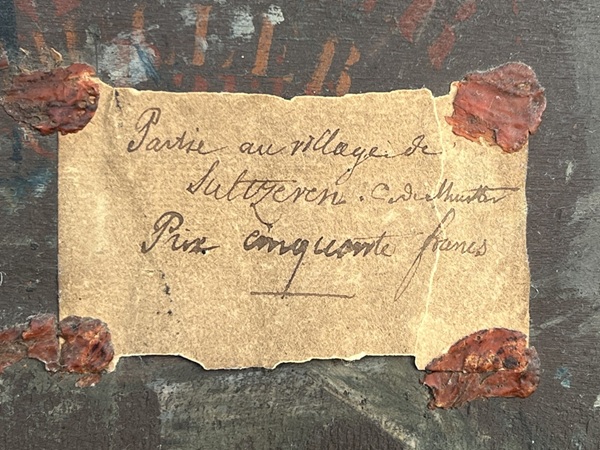 Partie au village de
Sultzeren. C. de Munster
Prix cinquante francs